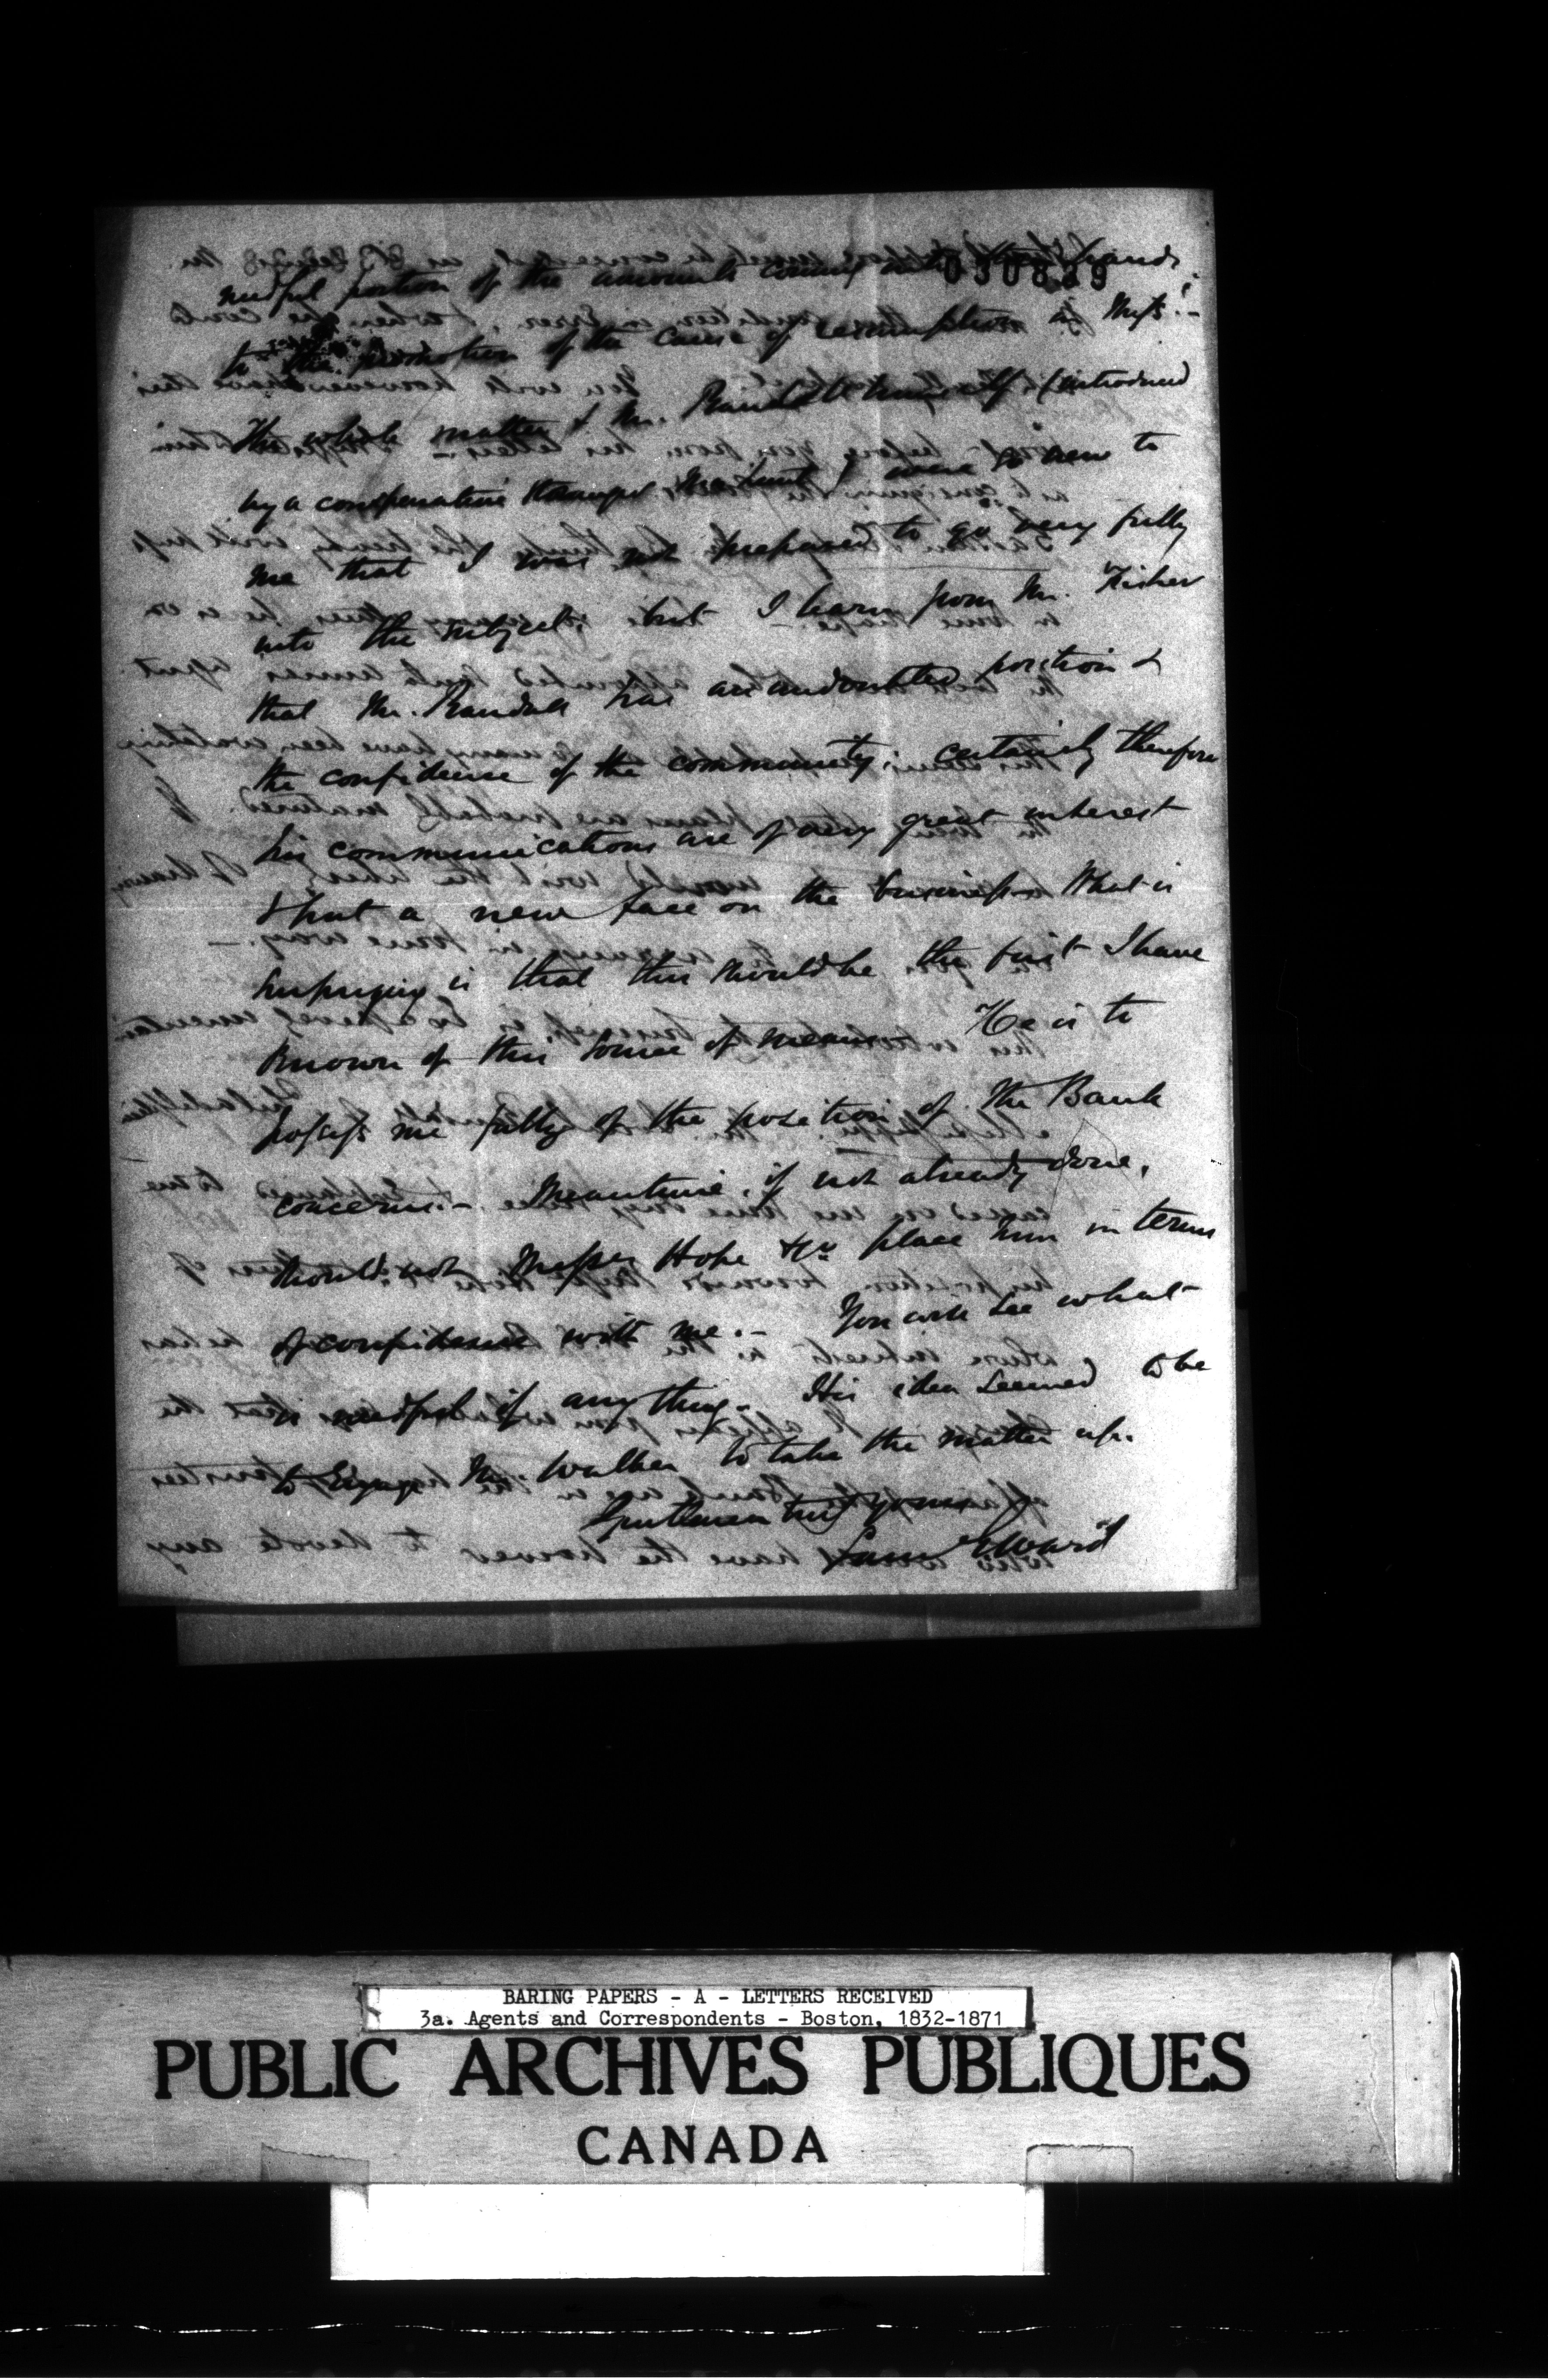 030839
needful portion of the amounts coming into their hands,
to the promotion of the cause of resumption in Miss:-
The whole matter & Mr. Randall himself (introduced
by a comparative stranger Mr. ) were so new to
me that I was not prepared to go very fully
into the subject, but I learn from Mr. Fisher
that Mr. Randall has an undoubted position &
the confidence of the community; certainly therefore
his communications are of very great interest
& put a new face on the business. What is
surprizing is that this should be the first I have
known of this source of means. He is to
possess me fully of the position of the Bank
concerns.- Meantime, if not already done,
should not Messrs Hope & Co place him in terms
of confidence with me.- You will see what
is needful if anything. His idea seemed to be
to engage Mr. Walker to take the matter up.
Gentlemen truly yours
Sam Ward
BARING PAPERS - A - LETTERS RECEIVED
3a. Agents and Correspondents - Boston, 1832-1871
PUBLIC ARCHIVES PUBLIQUES
CANADA